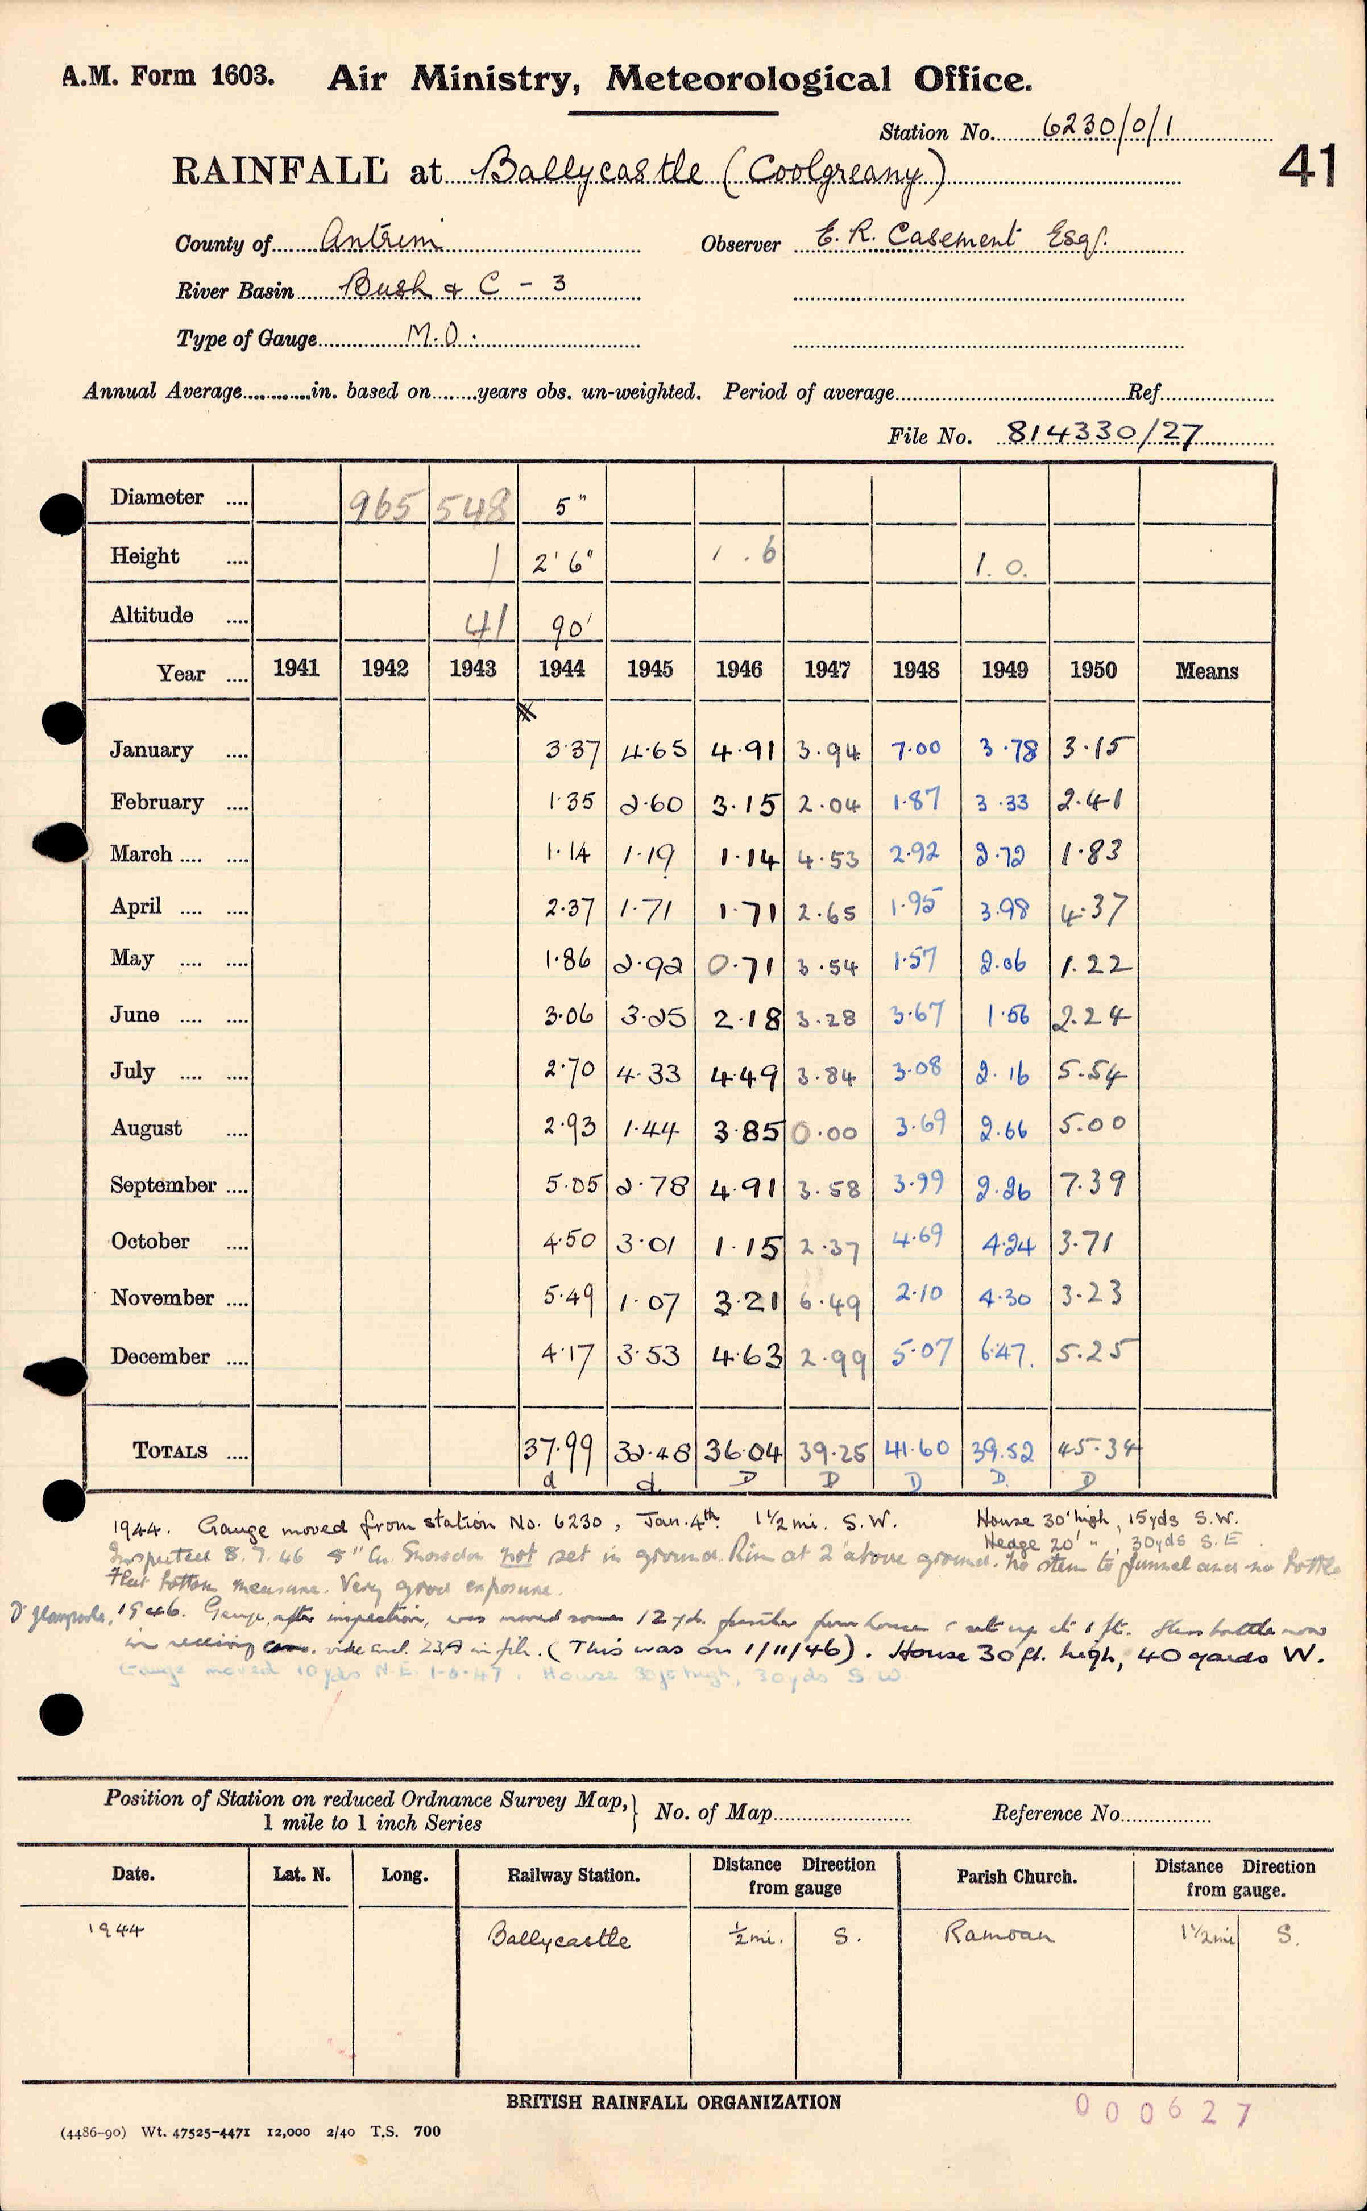 A.M. Form 1603. Air Ministry, Meteorological Office.
Station No. 6230/0/1
41
RAINFALL at Ballycastle (Coolgreany)
County of Antrim Observer E. R. Casement Esq.
River Basin Bush & C - 3
Type of Gauge M.O.
Annual Average in. based on years obs. un-weighted. Period of average Ref
File No. 814330/27
Diameter 965 548 5"
Height 1 2' 6" 1.6 1.0.
Altitude 41 90'
Year 1941 1942 1943 1944 1945 1946 1947 1948 1949 1950 Means
January 3.37 4.65 4.91 3.94 7.00 3.78 3.15
February 1.35 2.60 3.15 2.04 1.87 3.33 2.41
March 1.14 1.19 1.14 4.53 2.92 2.72 1.83
April 2.37 1.71 1.71 2.65 1.95 3.98 4.37
May 1.86 2.92 0.71 3.54 1.57 2.06 1.22
June 3.06 3.25 2.18 3.28 3.67 1.56 2.24
July 2.70 4.33 4.49 3.84 3.08 2.16 5.54
August 2.93 1.44 3.85 0.00 3.69 2.66 5.00
September 5.05 2.78 4.91 3.58 3.99 2.26 7.39
October 4.50 3.01 1.15 2.37 4.69 4.24 3.71
November 5.49 1.07 3.21 6.49 2.10 4.30 3.23
December 4.17 3.53 4.63 2.99 5.07 6.47. 5.25
TOTALS 37.99 32.48 36.04 39.25 41.60 39.52 45.34
d d. D D D D. D
1944. Gauge moved from station No. 6230, Jan. 4th. 1 1/2 mi. S.W. House 30' high, 15yds S.W.
Hedge 20' ", 30yds S.E.
Inspected 8.7.46 5" Cu. Snowdon not set in ground. Rim at 2' above ground. No stem to funnel and no bottle
Flat bottom measure. Very good exposure.
1946. Gauge, after inspection, was moved some 12 yd. further from house & set up at 1 ft. Glass bottle now
in receiving vide encl. 23A in file. (This was on 1/11/46). House 30 ft. high, 40 yards W.
Gauge moved 10 yds N.E. 1-6-47. House 30ft high, 30yds S.W.
Position of Station on reduced Ordnance Survey Map, No. of Map Reference No
1 mile to 1 inch Series
Date. Lat. N. Long. Railway Station. Distance Direction from gauge Parish Church. Distance Direction from gauge.
1944 Ballycastle 1/2 mi. S. Ramoan 1 1/2 mi S.
BRITISH RAINFALL ORGANIZATION
000627
(4486-90) Wt. 47525-4471 12,000 2/40 T.S. 700